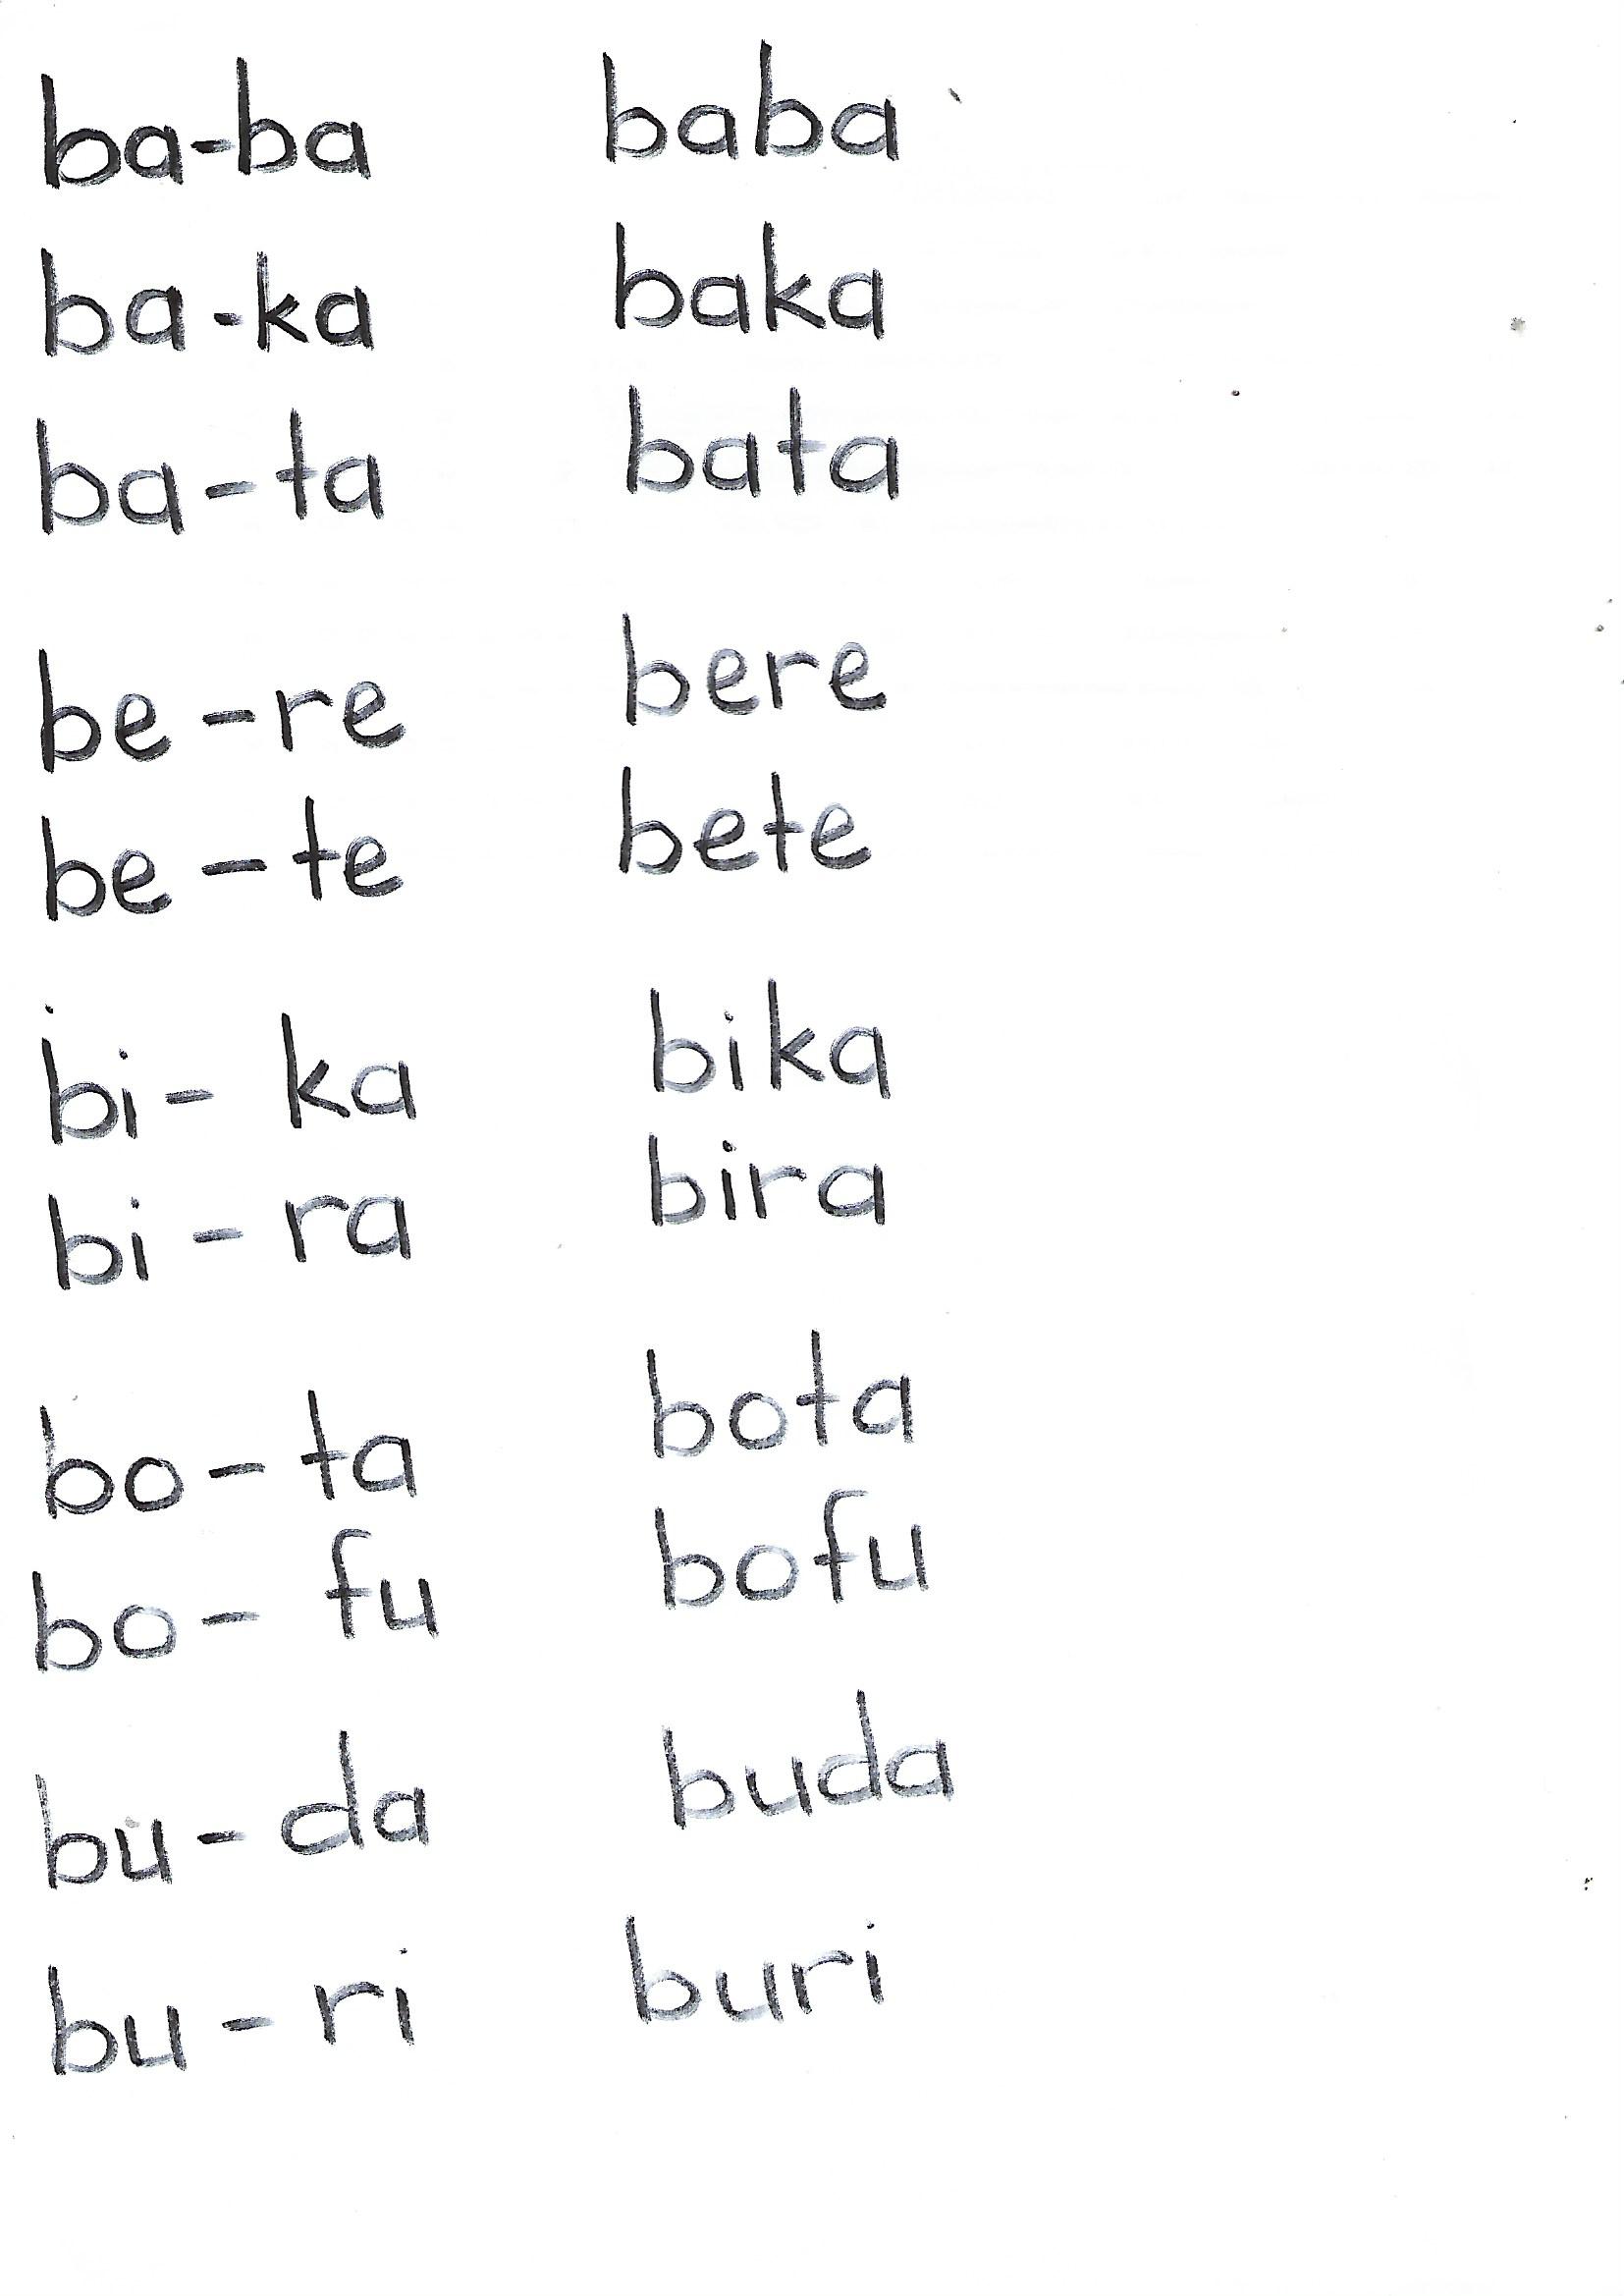 ba-ba baba
ba-ka baka
ba-ta bata
be-re bere
be-te bete
bi-ka bika
bi-ra bira
bo-ta bota
bo-fu bofu
bu-da buda
bu-ri buri